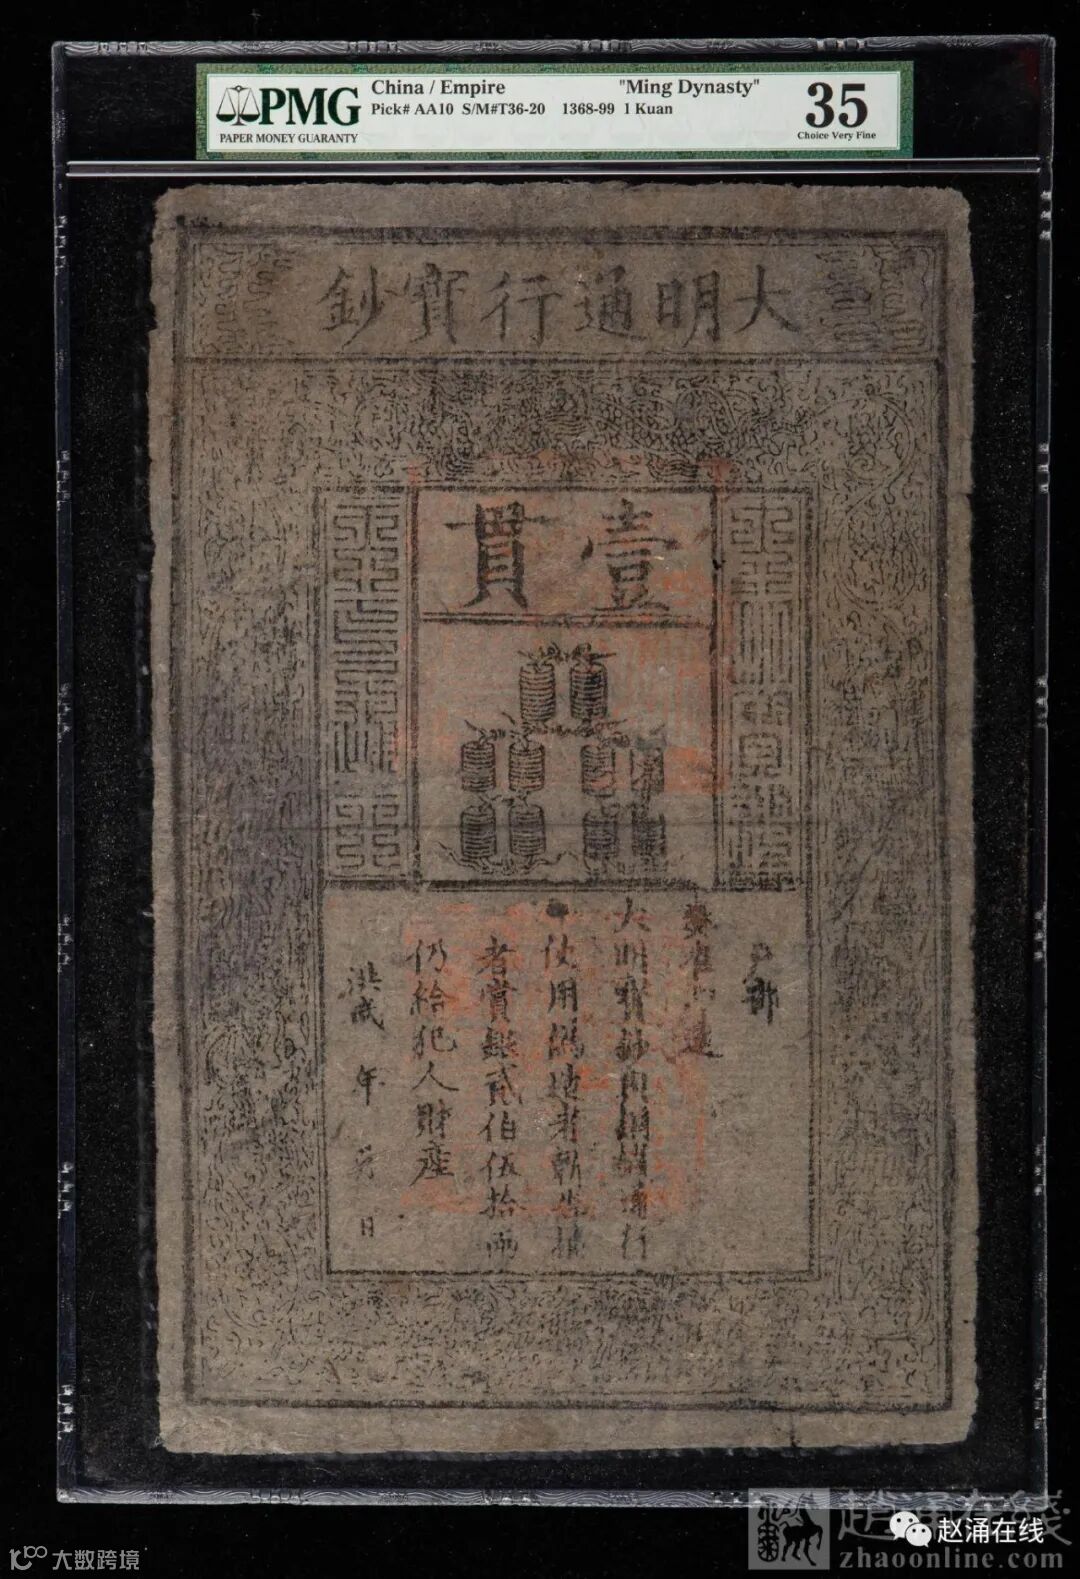 PMG
PAPER MONEY GUARANTY
China / Empire "Ming Dynasty"
Pick# AA10 S/M#T36-20 1368-99 1 Kuan
35
Choice Very Fine
大明通行寶鈔
壹貫
戶部
奏准印造
大明寶鈔與銅錢通行
使用偽造者斬告捕
者賞銀貳伯伍拾兩
仍給犯人財產
洪武 年 月 日
大数跨境
赵涌在线
赵涌在线
zhaoonline.com